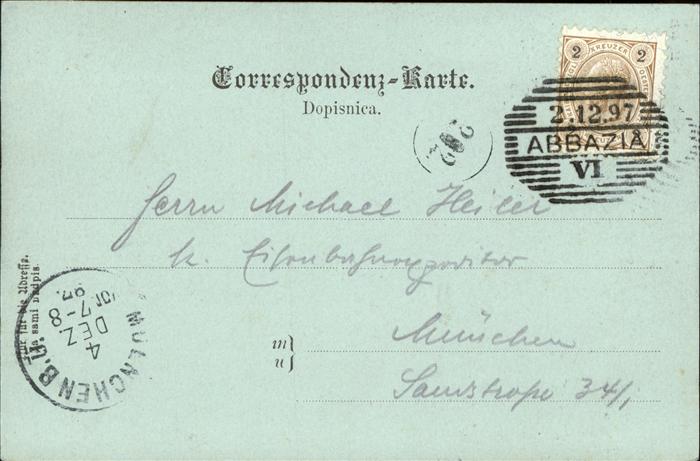 2 KREUZER 2
Correspondenz-Karte.
Dopisnica.
2.12.97
ABBAZIA
VI
Herrn Michael Heiler
k. Eisenbahnexpeditor
m
u
München
Saarstraße 34/1
Nur für die Adresse.
Za sami nadpis.
MUENCHEN B.
4
DEZ
7-8
97